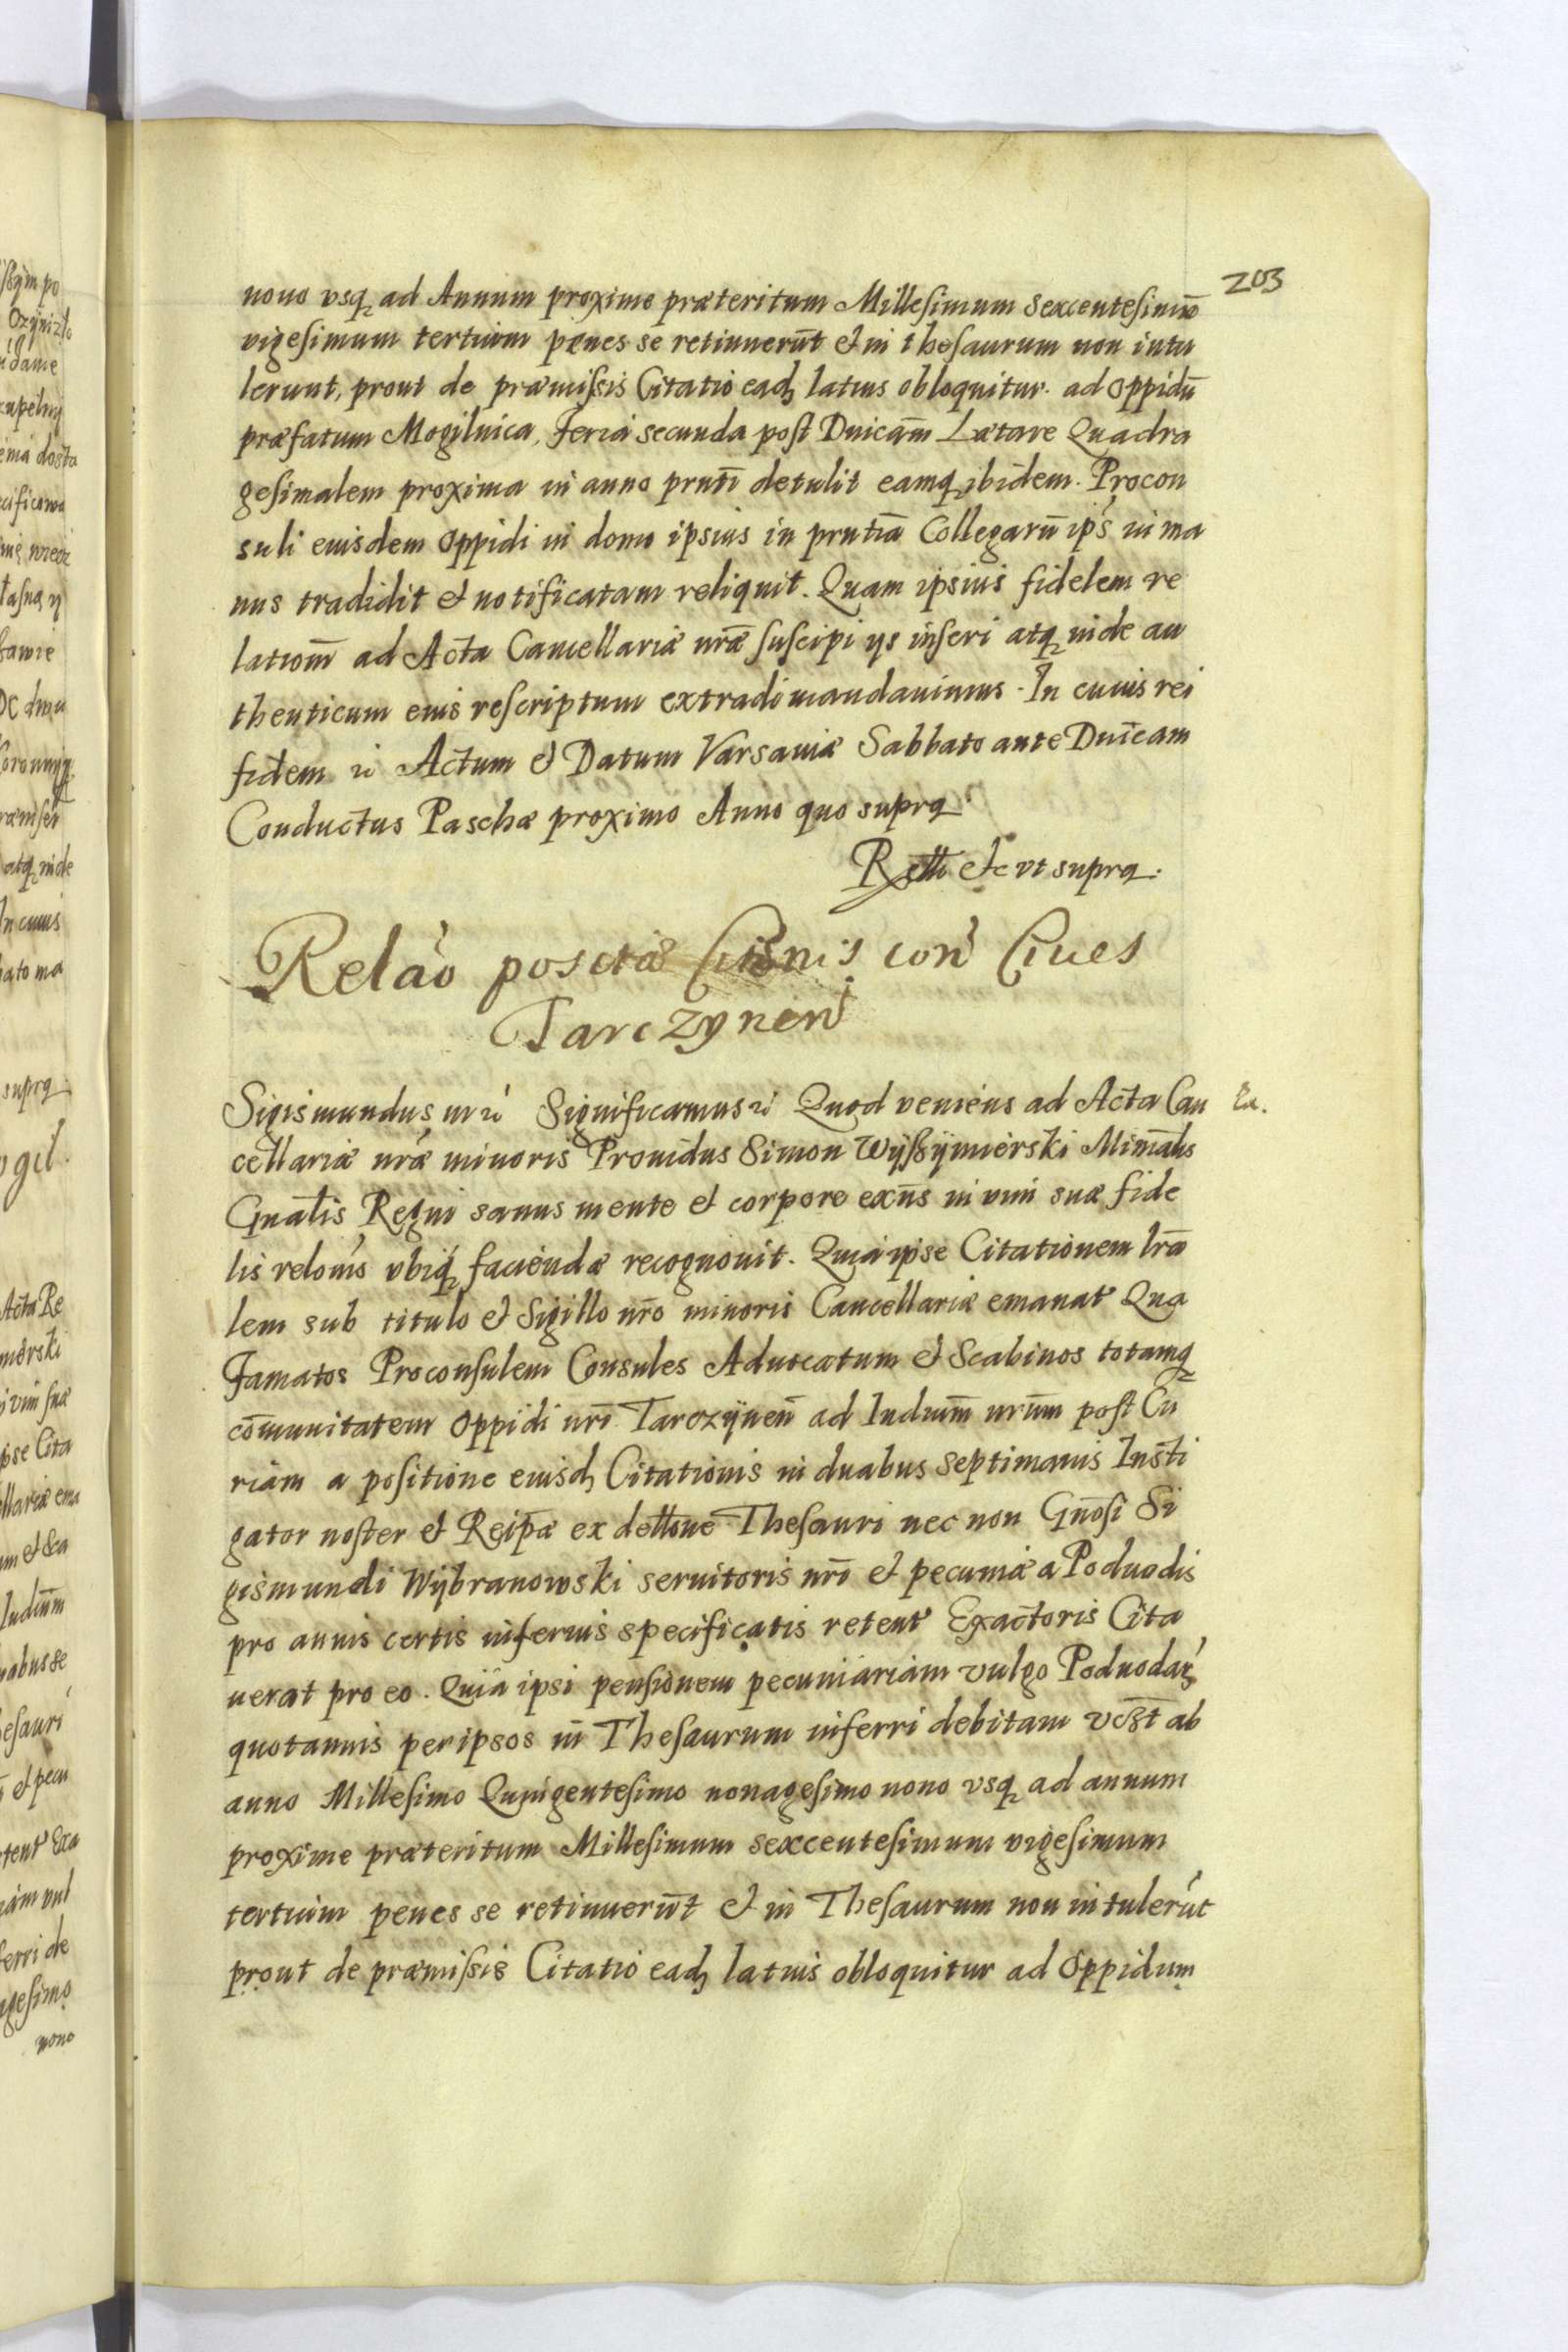 203
nono vsq ad Annum proxime præteritum Millesimum Sexcentesimū
vigesimum tertium penes se retinuerūt et in thesaurum non intu
lerunt, prout de præmissis Citatio ead latius obloquitur. ad oppidū
præfatum Mogilnica, Feria secunda post Dnicam̄ Lætare Quadra
gesimalem proxima in anno prnti detulit eamq ibidem. Procon
suli eiusdem oppidi in domo ipsius in prntia Collegarū ips̄ in ma
nus tradidit et notificatam reliquit. Quam ipsius fidelem re
latiom̄ ad Acta Cancellariæ nræ suscipi ys inseri atq inde au
thenticum eius rescriptum extradi mandauimus. In cuius rei
fidem Actum et Datum Varsauiæ Sabbato ante Dnicam
Conductus Paschæ proximo Anno quo supra
etc vt supra.
Relaõ poscitæ con Ciues
Tarczynen
Sigismundus Significamus Quod veniens ad Acta Can
cellariæ nræ minoris Prouidus Simon Wÿszÿmierski
Gnalis Regni sanus mente et corpore exn̄s in vim suæ fide
lis relōnis vbiq faciendæ recognouit. Quia ipse Citationem lrā
lem sub titulo et Sigillo nrō minoris Cancellariæ emanat Qua
Famatos Proconsulem Consules Aduocatum et Scabinos totamq
cōmunitatem oppidi nrī Tarczÿnen̄ ad Iudium̄ nrūm post Cu
riam a positione eiusd Citationis in duabus septimanis Insti
gator noster et Reipæ ex dellone Thesauri nec non Gnōsi Si
gismundi Wÿbranowski seruitoris nrī et pecuniæ a Poduodis
pro annis certis inferius specificatis retent Exactoris Cita
uerat pro eo. Quia ipsi pensionem pecuniariam vulgo Poduodar
quotannis per ipsos in Thesaurum inferri debitam ab
anno Millesimo Quingentesimo nonagesimo nono vsq ad annum
proxime præteritum Millesimum sexcentesimum vigesimum
tertium penes se retinuerūt et in Thesaurum non intulerūt
prout de præmissis Citatio ead latius obloquitur ad Oppidum